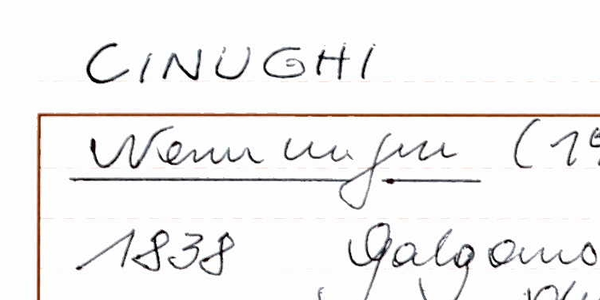 CINUGHI
Nennungen (19
1838 Galgano